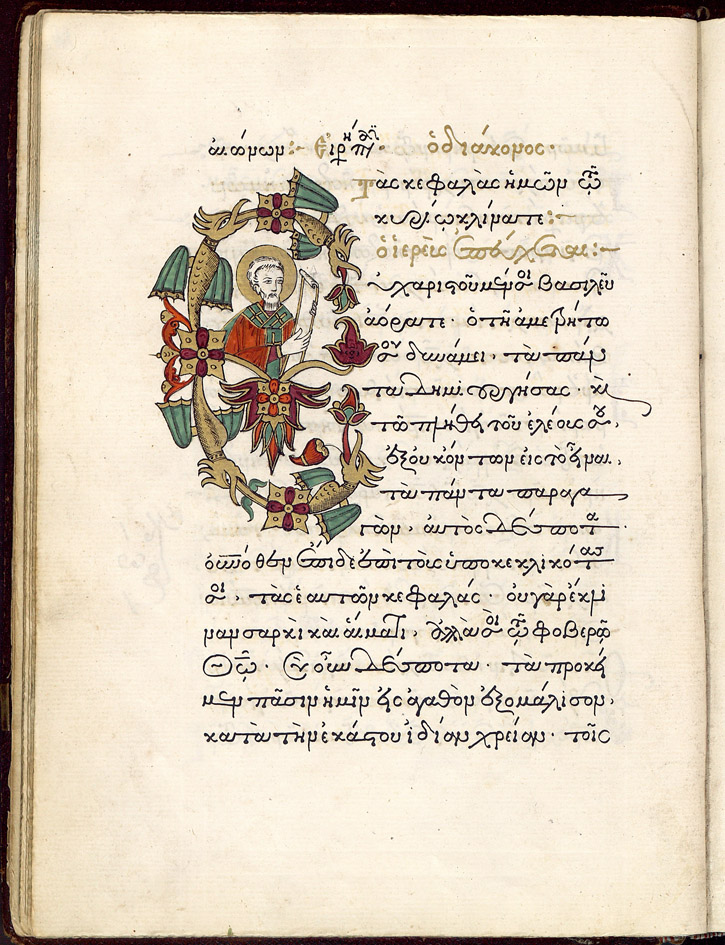 αἰώνων:- Εἰρήνη πᾶσι· ὁ διάκονος·
Τὰς κεφαλὰς ἡμῶν τῶ
κυρίω κλίνατε:-
ὁ ἱερεὺς ἐπεύχεται:-
Εὐχαριστοῦμέν σοι βασιλεῦ
ἀόρατε· ὁ τῆ ἀμετρήτω
σου δυνάμει· τὰ πάν
τα δημιουργήσας· καὶ
τῶ πλήθει τοῦ ἐλέους σου,
ἐξ οὐκ ὄντων εἰς τὸ εἶναι,
τὰ πάντα παραγα
γὼν· αὐτὸς δέσποτα·
οὐνόθεν ἔπιδε ἐπὶ τοὺς ὑποκεκλικότας
σοι, τὰς ἑαυτῶν κεφαλάς· οὐ γὰρ ἔκλι
ναν σαρκὶ καὶ αἵματι, ἀλλὰ σοὶ τῶ φοβερῶ
Θῶ· Σὺ οὖν δέσποτα· τὰ προκεί
μενα πᾶσιν ἡμῖν εἰς ἀγαθὸν ἐξομάλισον,
κατὰ τὴν ἑκάστου ἰδίαν χρείαν· τοῖς